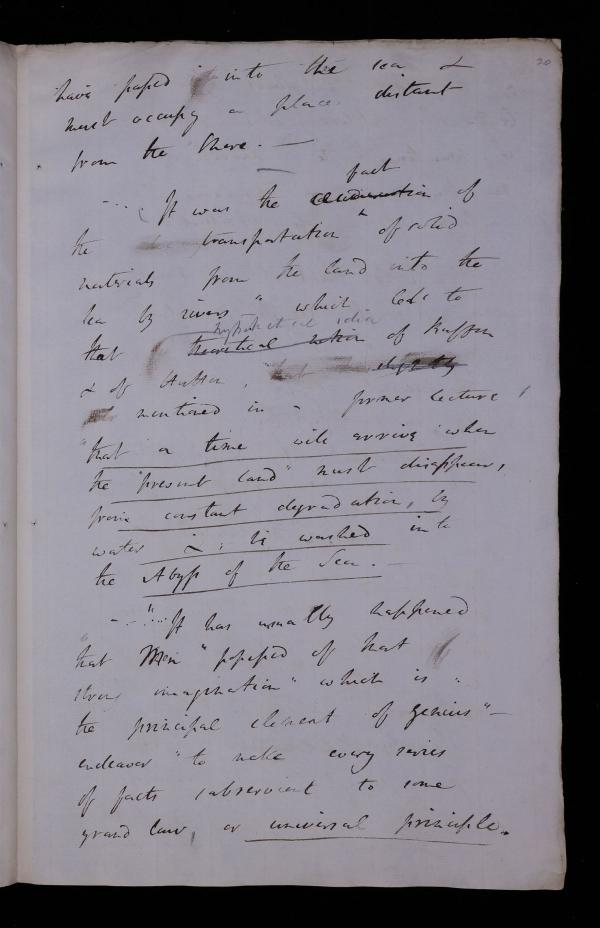 20
have passed into the sea &
must occupy a place distant
from the shore. —
fact
It was the of
the transportation of solid
materials from the land into the
sea by rivers" which led to
hypothetical idea
that theoretical notion of Buffon
& of Hutton,
mentioned in a former Lecture
"that a time will arrive when
the "present land" must disappear,
from constant degradation, by
water & be washed into
the Abyss of the Sea. —
"It has usually happened
that Men "possessed of that
strong imagination" which is
the principal element of genius" —
endeavor "to make every series
of facts subservient to some
grand law, or universal principle.